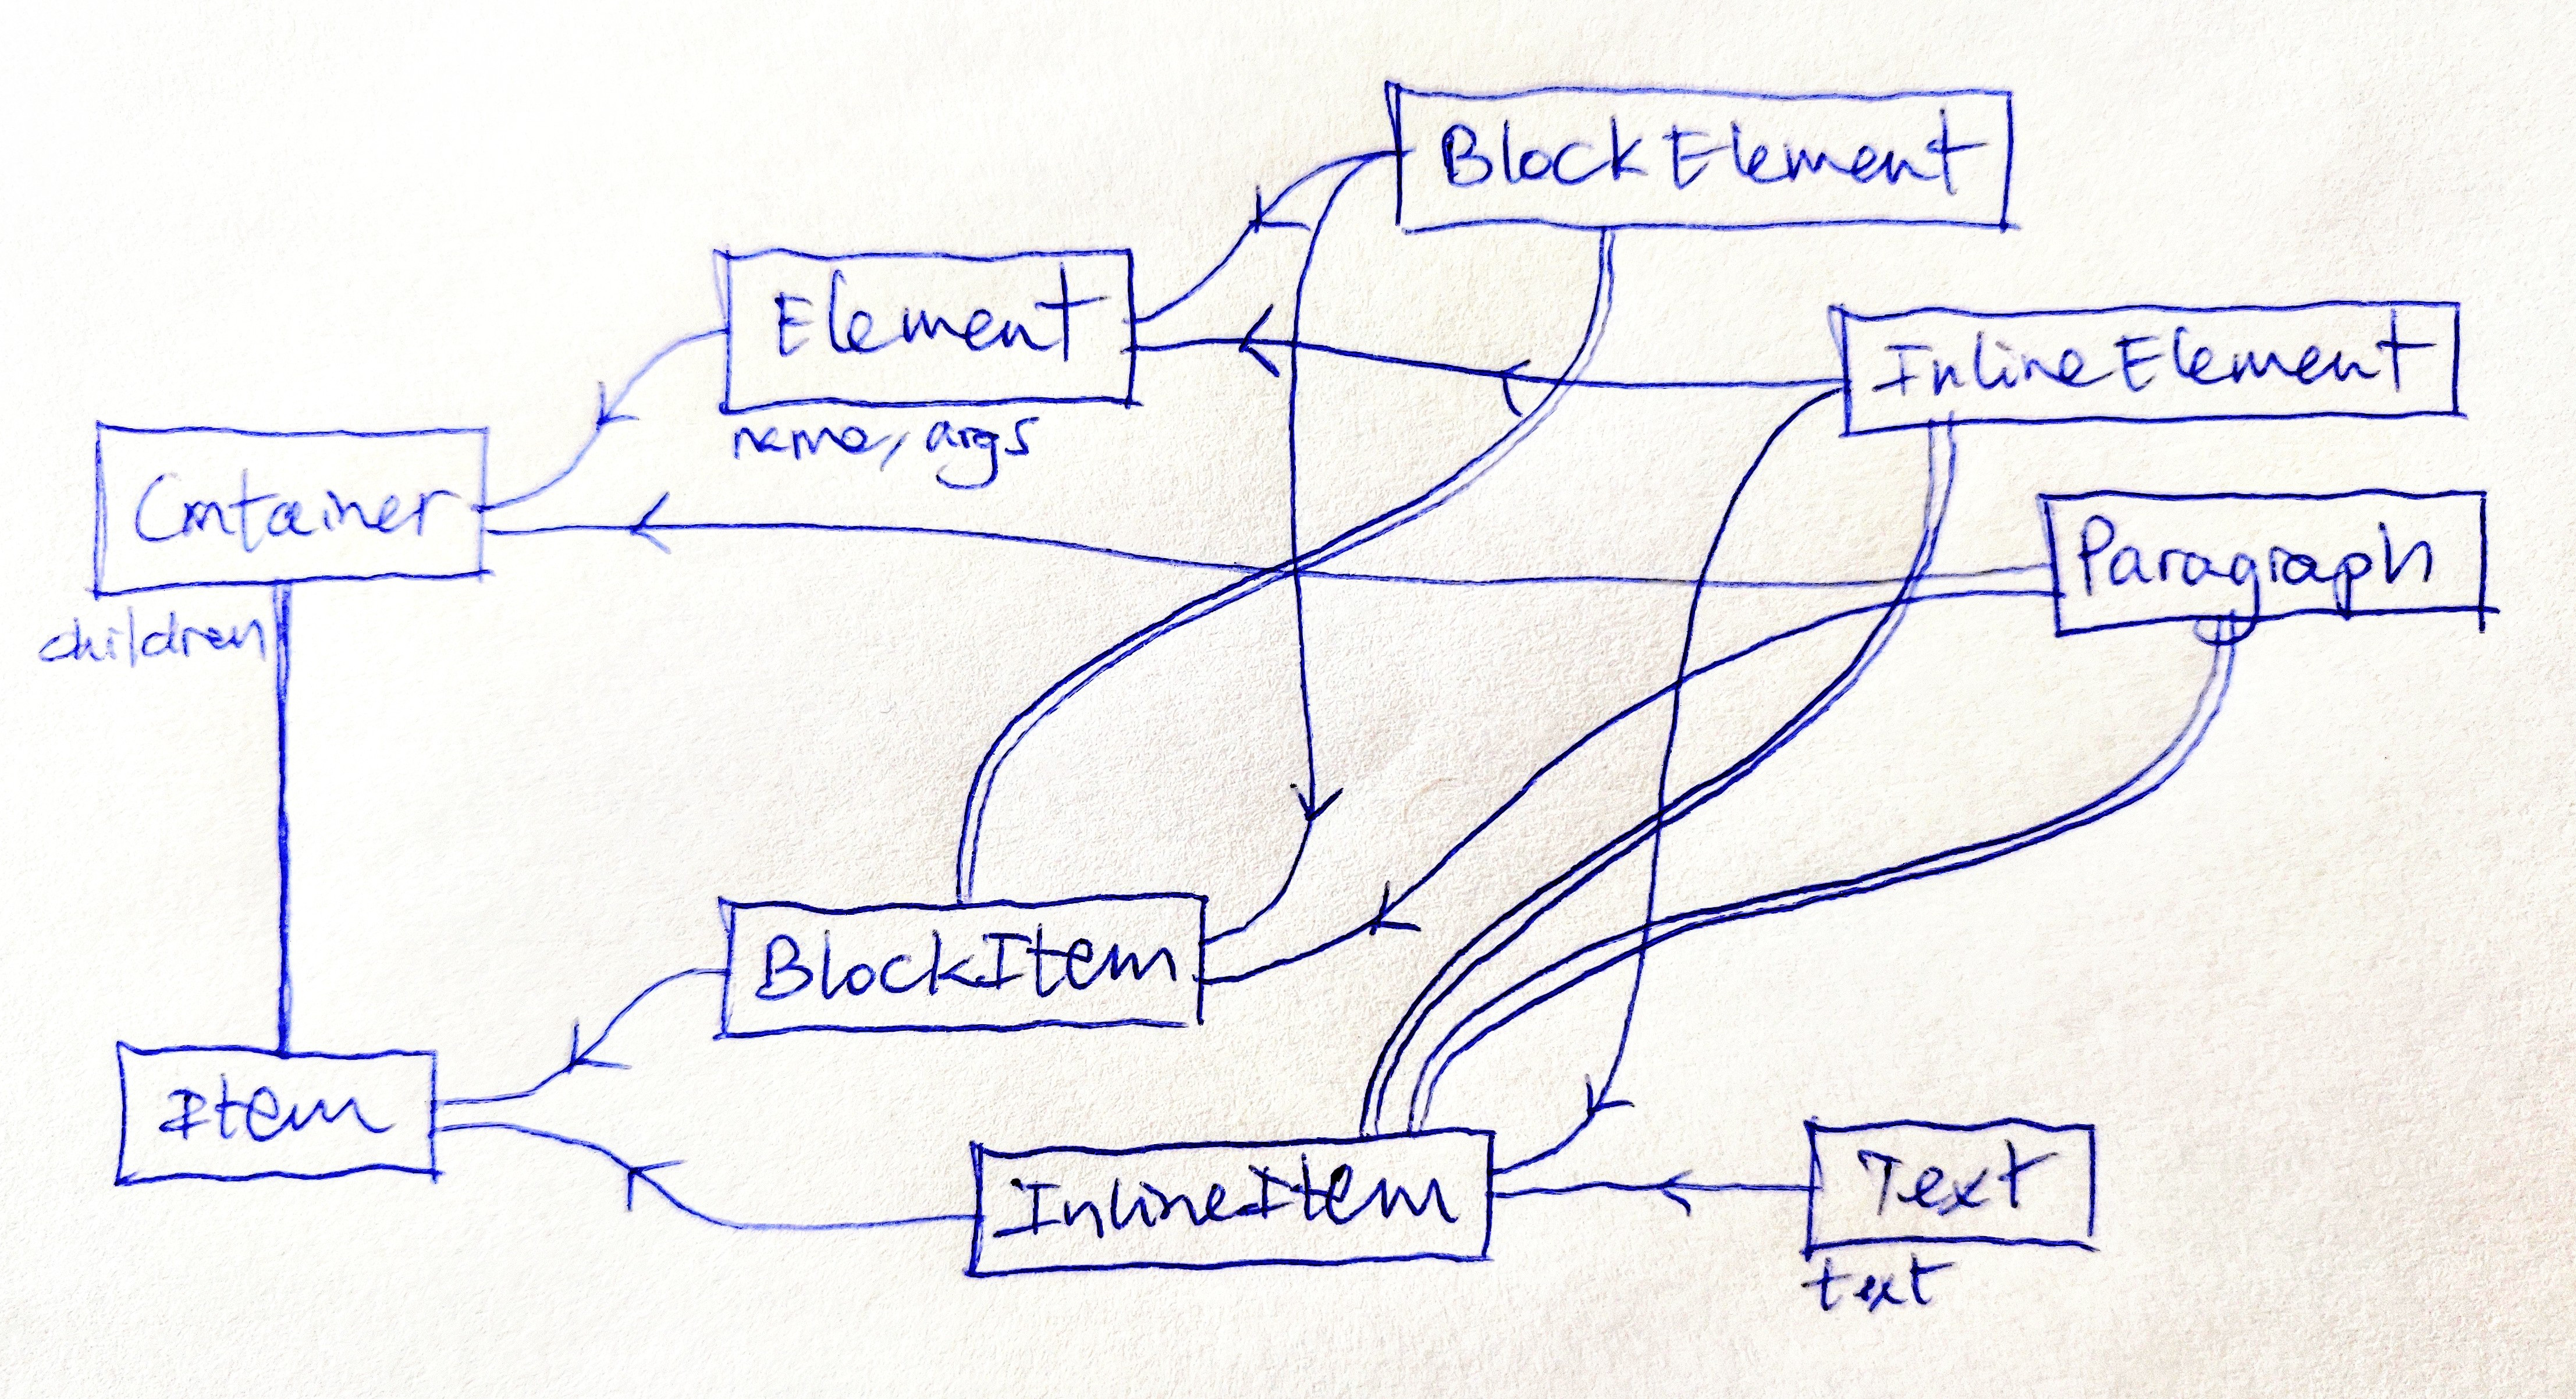 BlockElement
Element
name, args
InlineElement
Container
children
Paragraph
BlockItem
Item
InlineItem
Text
text